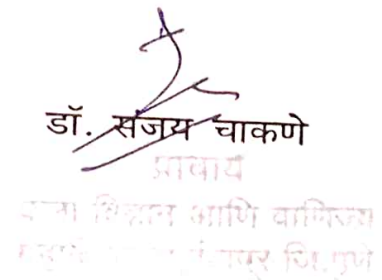 डॉ. संजय चाकणे
प्राचार्य
कला विज्ञान आणि वाणिज्य
जि. पुणे